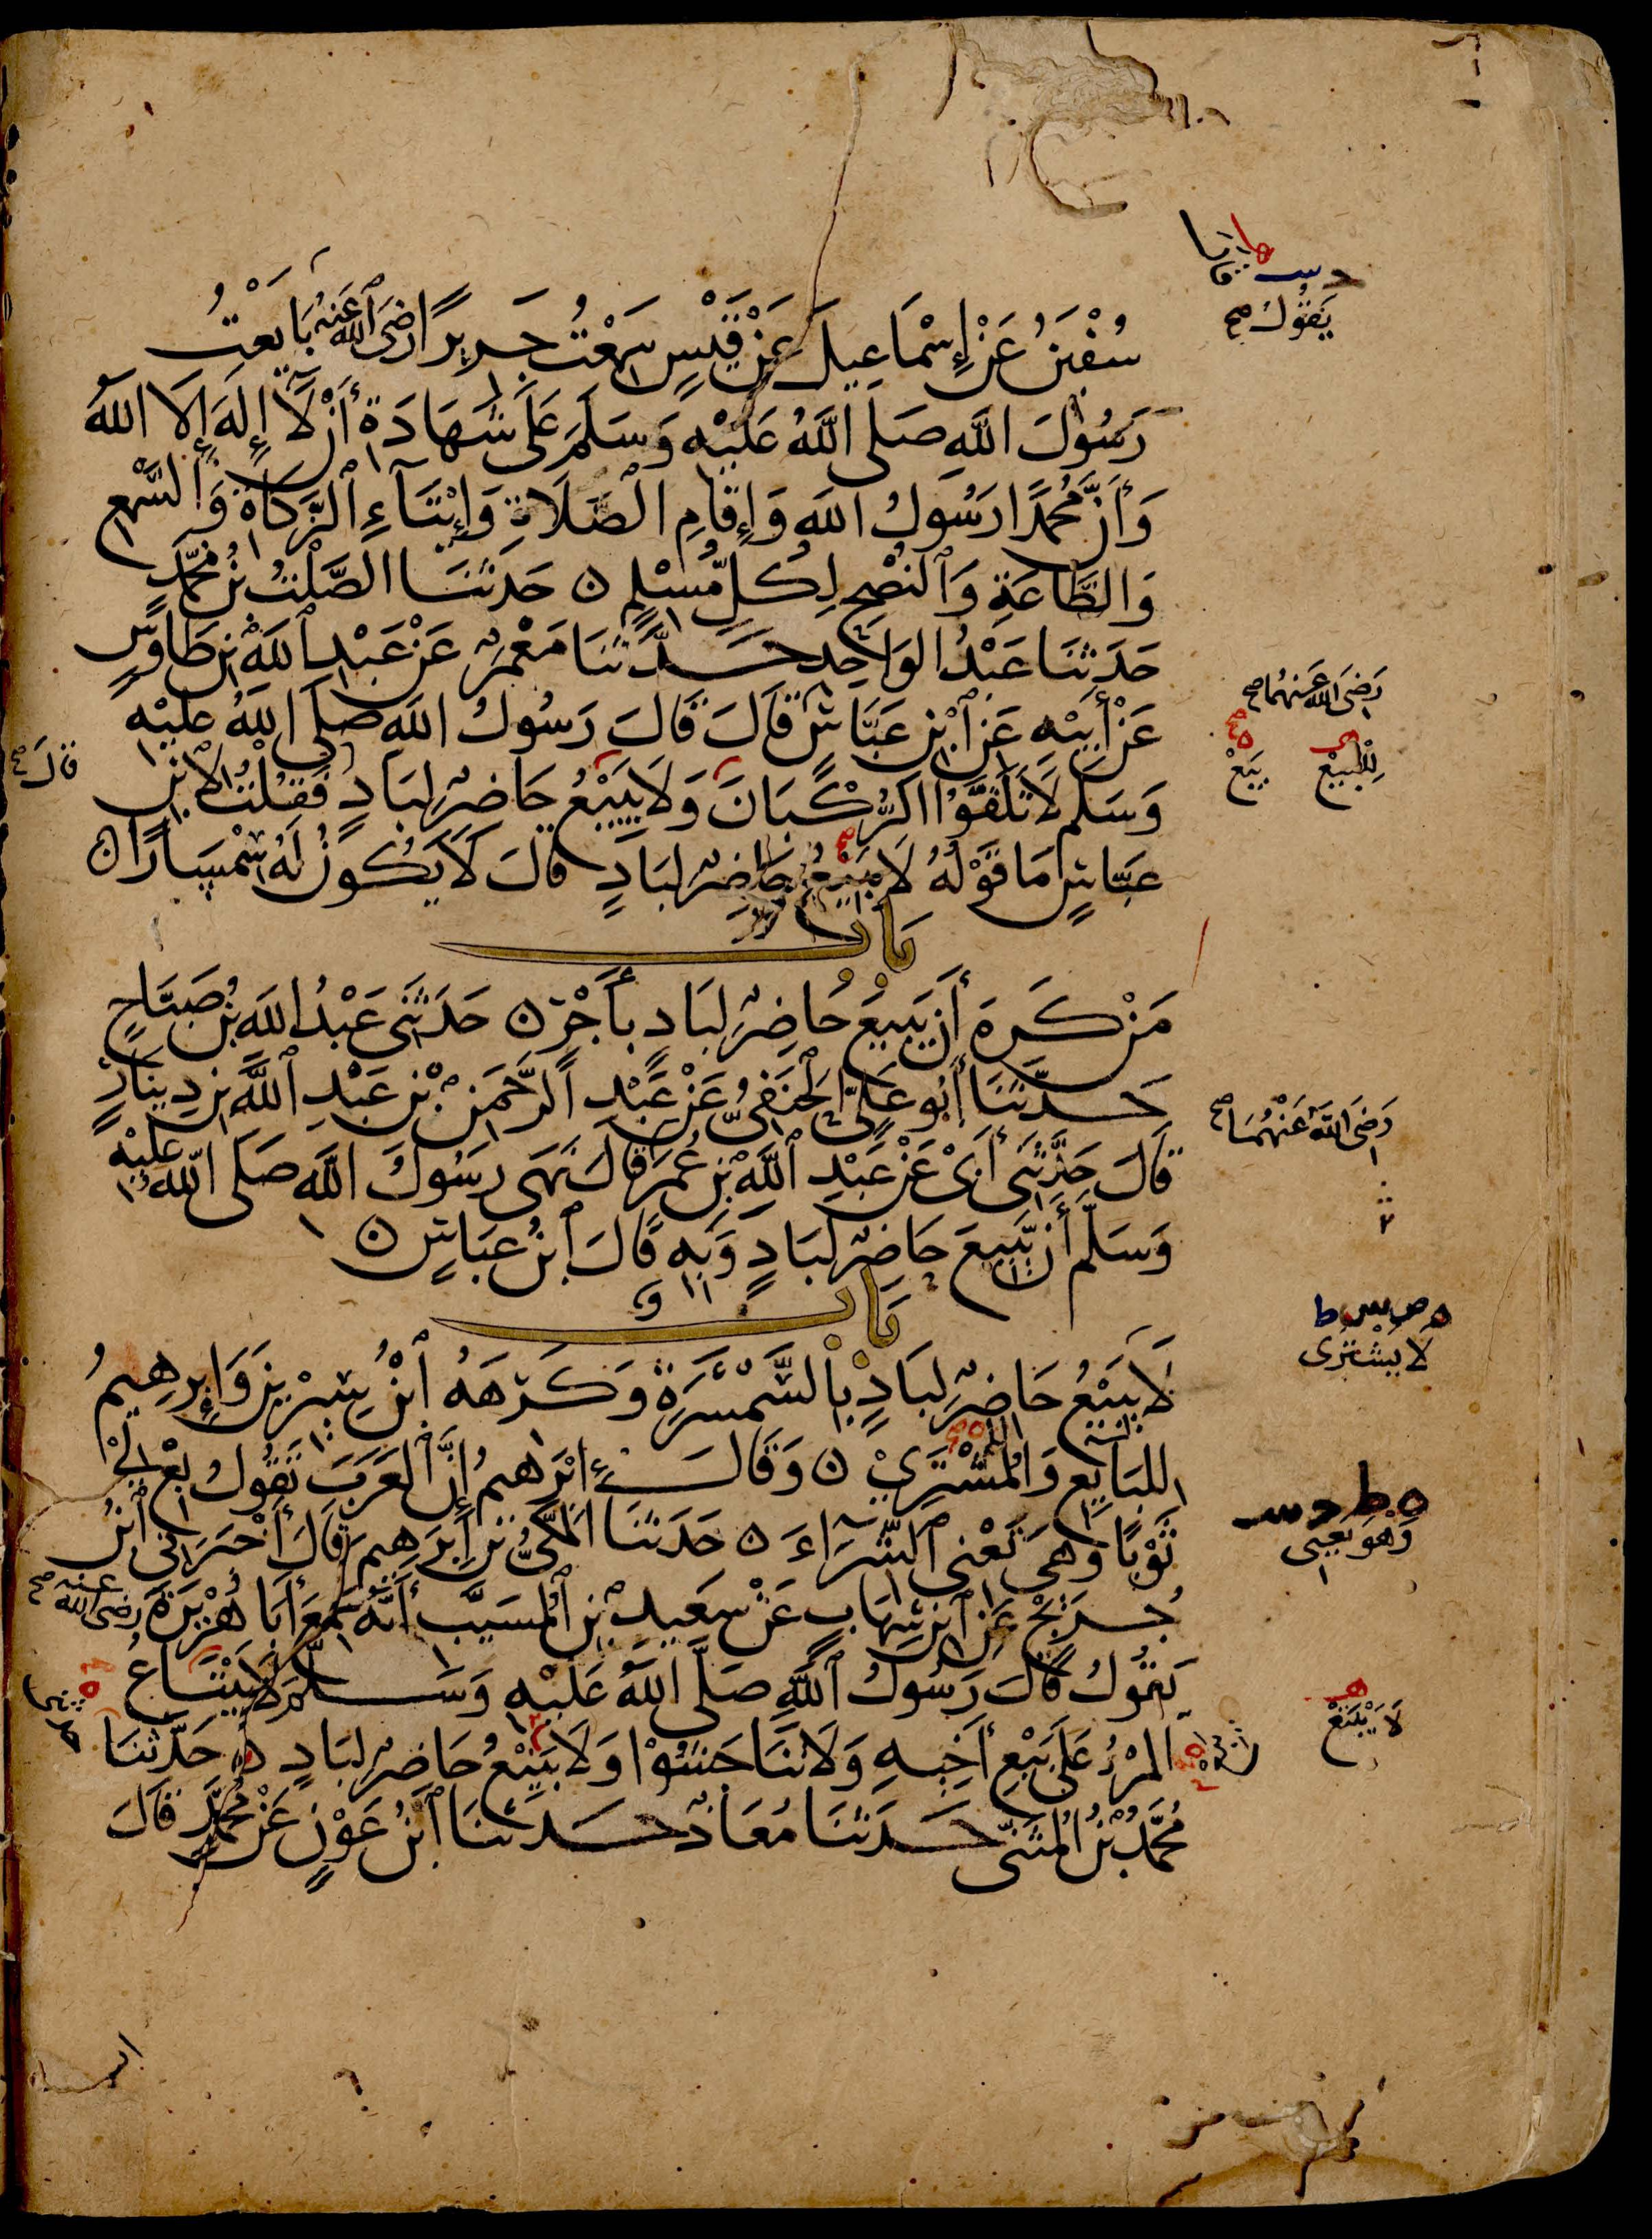 سُفْيٰنُ عَنْ إِسْمَاعِيلَ عَنْ قَيْسٍ سَمِعْتُ جَرِيرًا رَضِيَ ٱللَّهُ عَنْهُ بَايَعْتُ
رَسُولَ اللَّهِ صَلَّى اللَّهُ عَلَيْهِ وَسَلَّمَ عَلَى شَهَادَةِ أَنْ لَا إِلَهَ إِلَّا اللَّهُ
وَأَنَّ مُحَمَّدًا رَسُولُ اللَّهِ وَإِقَامِ الصَّلَاةِ وَإِيتَاءِ ٱلزَّكَاةِ وَالسَّمْعِ
وَالطَّاعَةِ وَٱلنُّصْحِ لِكُلِّ مُسْلِمٍ ۝ حَدَّثَنَا الصَّلْتُ بْنُ مُحَمَّدٍ
حَدَّثَنَا عَبْدُ الوَاحِدِ حَدَّثَنَا مَعْمَرٌ عَنْ عَبْدِ ٱللَّهِ بْنِ طَاوُسٍ
عَنْ أَبِيْهِ عَنِ ٱبْنِ عَبَّاسٍ قَالَ قَالَ رَسُولُ اللَّهِ صَلَّى اللَّهُ عَلَيْهِ
وَسَلَّمَ لَا تَلَقَّوُا الرُّكْبَانَ وَلَا يَبِيْعُ حَاضِرٌ لِبَادٍ فَقُلْتُ لِابْنِ
عَبَّاسٍ مَا قَوْلُهُ لَا يَبِيْعُ حَاضِرٌ لِبَادٍ قَالَ لَا يَكُونُ لَهُ سِمْسَارًا ۝
بَاب
مَنْ كَرِهَ أَنْ يَبِيعَ حَاضِرٌ لِبَادٍ بِأَجْرٍ ۝ حَدَّثَنِي عَبْدُ اللَّهِ بْنُ صَبَّاحٍ
حَدَّثَنَا أَبُو عَلِيٍّ ٱلْحَنَفِيُّ عَنْ عَبْدِ ٱلرَّحْمَنِ بْنِ عَبْدِ ٱللَّهِ بْنِ دِينَارٍ
قَالَ حَدَّثَنِي أَبِيْ عَنْ عَبْدِ ٱللَّهِ بْنِ عُمَرَ قَالَ نَهَى رَسُولُ اللَّهِ صَلَّى اللَّهُ عَلَيْهِ
وَسَلَّمَ أَنْ يَّبِيعَ حَاضِرٌ لِبَادٍ وَبِهِ قَالَ ٱبْنُ عَبَّاسٍ ۝
بَاب
لَا يَبِيْعُ حَاضِرٌ لِبَادٍ بِالسَّمْسَرَةِ وَكَرِهَهُ ٱبْنُ سِيْرِيْنَ وَإِبْرَهِيمُ
لِلْبَائِعِ وَالْمُشْتَرِيْ ۝ وَقَالَ إِبْرَهِيمُ إِنَّ ٱلْعَرَبَ تَقُولُ بِعْ لِيْ
ثَوْبًا وَهِيَ تَعْنِي ٱلشِّرَاءَ ۝ حَدَّثَنَا الْمَكِّيُّ بْنُ إِبْرَهِيمَ قَالَ أَخْبَرَنِي ٱبْنُ
جُرَيْجٍ عَنِ ٱبْنِ شِهَابٍ عَنْ سَعِيدِ بْنِ ٱلْمُسَيَّبِ أَنَّهُ سَمِعَ أَبَا هُرَيْرَةَ رضي الله عنه صح
يَقُولُ قَالَ رَسُولُ ٱللَّهِ صَلَّى اللَّهُ عَلَيْهِ وَسَلَّمَ لَا يَبْتَاعُ
الْمَرْءُ عَلَى بَيْعِ أَخِيهِ وَلَا تَنَاجَشُوْا وَلَا يَبِيْعُ حَاضِرٌ لِبَادٍ ۝ حَدَّثَنَا
مُحَمَّدُ بْنُ الْمُثَنَّى حَدَّثَنَا مُعَاذٌ حَدَّثَنَا ٱبْنُ عَوْنٍ عَنْ مُحَمَّدٍ قَالَ
يَقُولُ صح
رَضِيَ اللَّهُ عَنْهُمَا صح
يَبِعْ
قال
رَضِيَ اللَّهُ عَنْهُمَا صح
لَا يَشْتَرِي
وَهْوَ يَعْنِي
لَا يَبْتَعْ